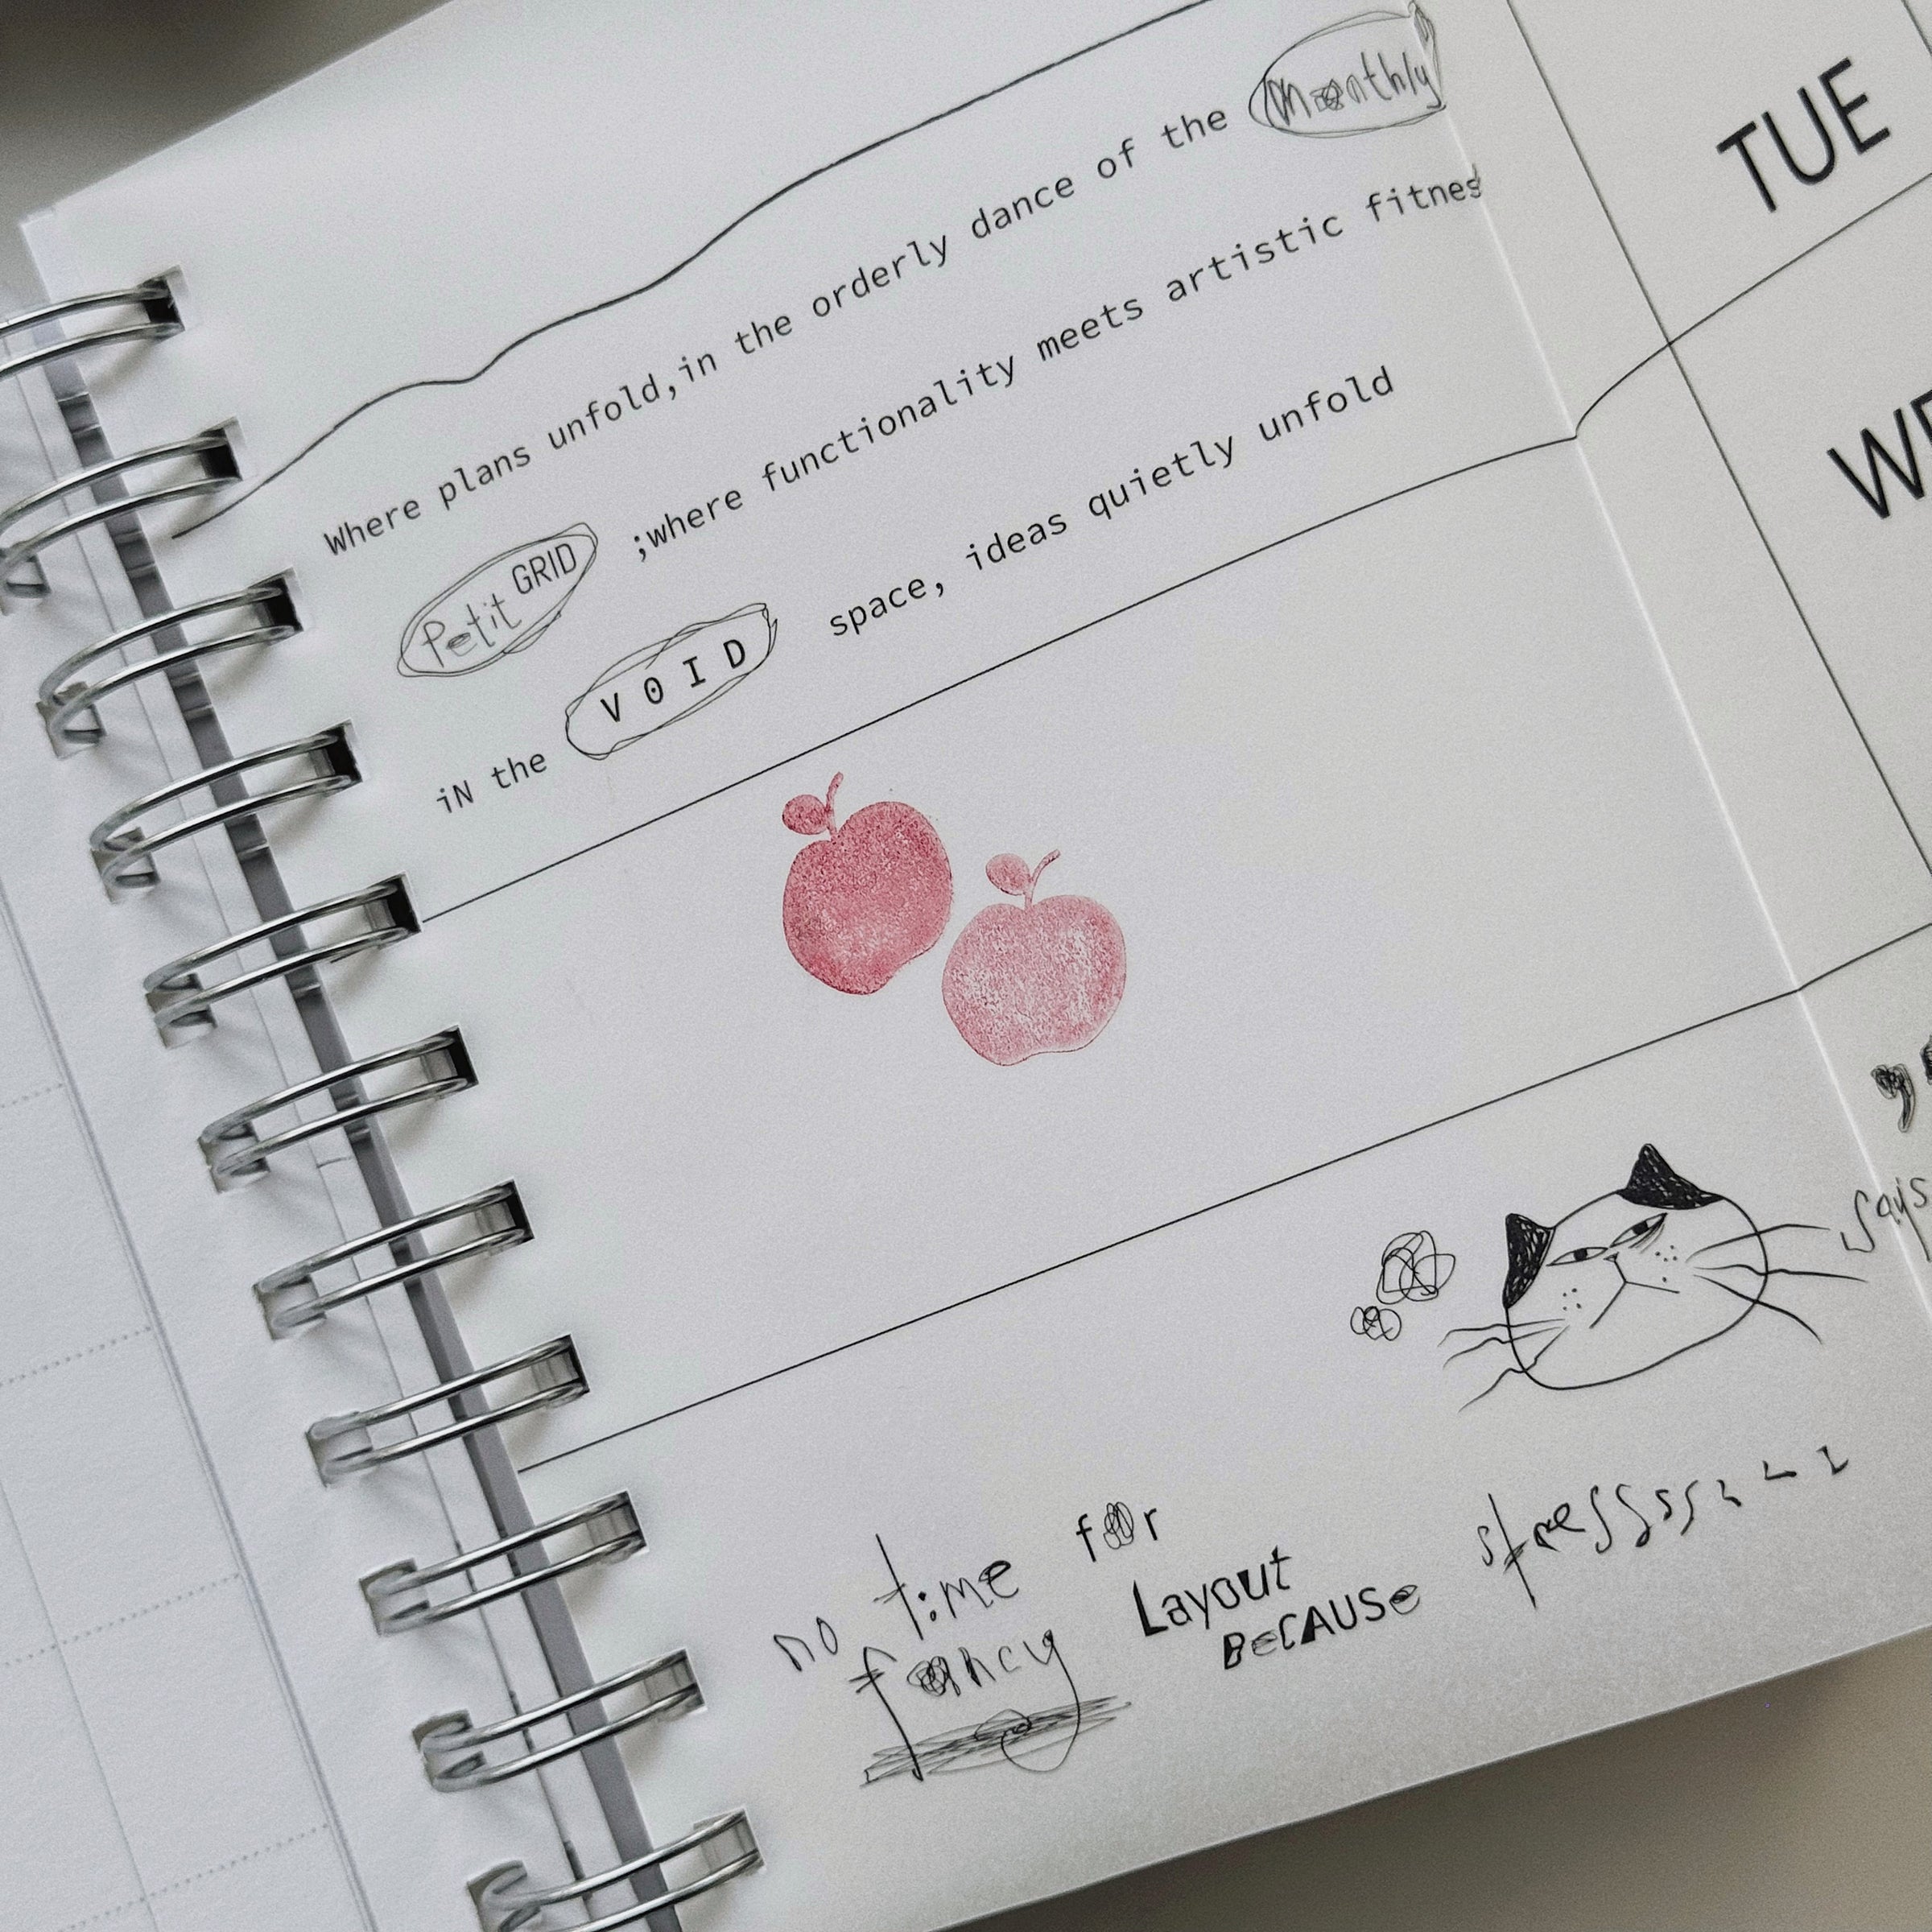 Where plans unfold,in the orderly dance of the monthly
Petit GRID ;where functionality meets artistic fitnes
iN the V0ID space, ideas quietly unfold
TUE
says
no time for
fancy Layout
BeCAUSe stressss